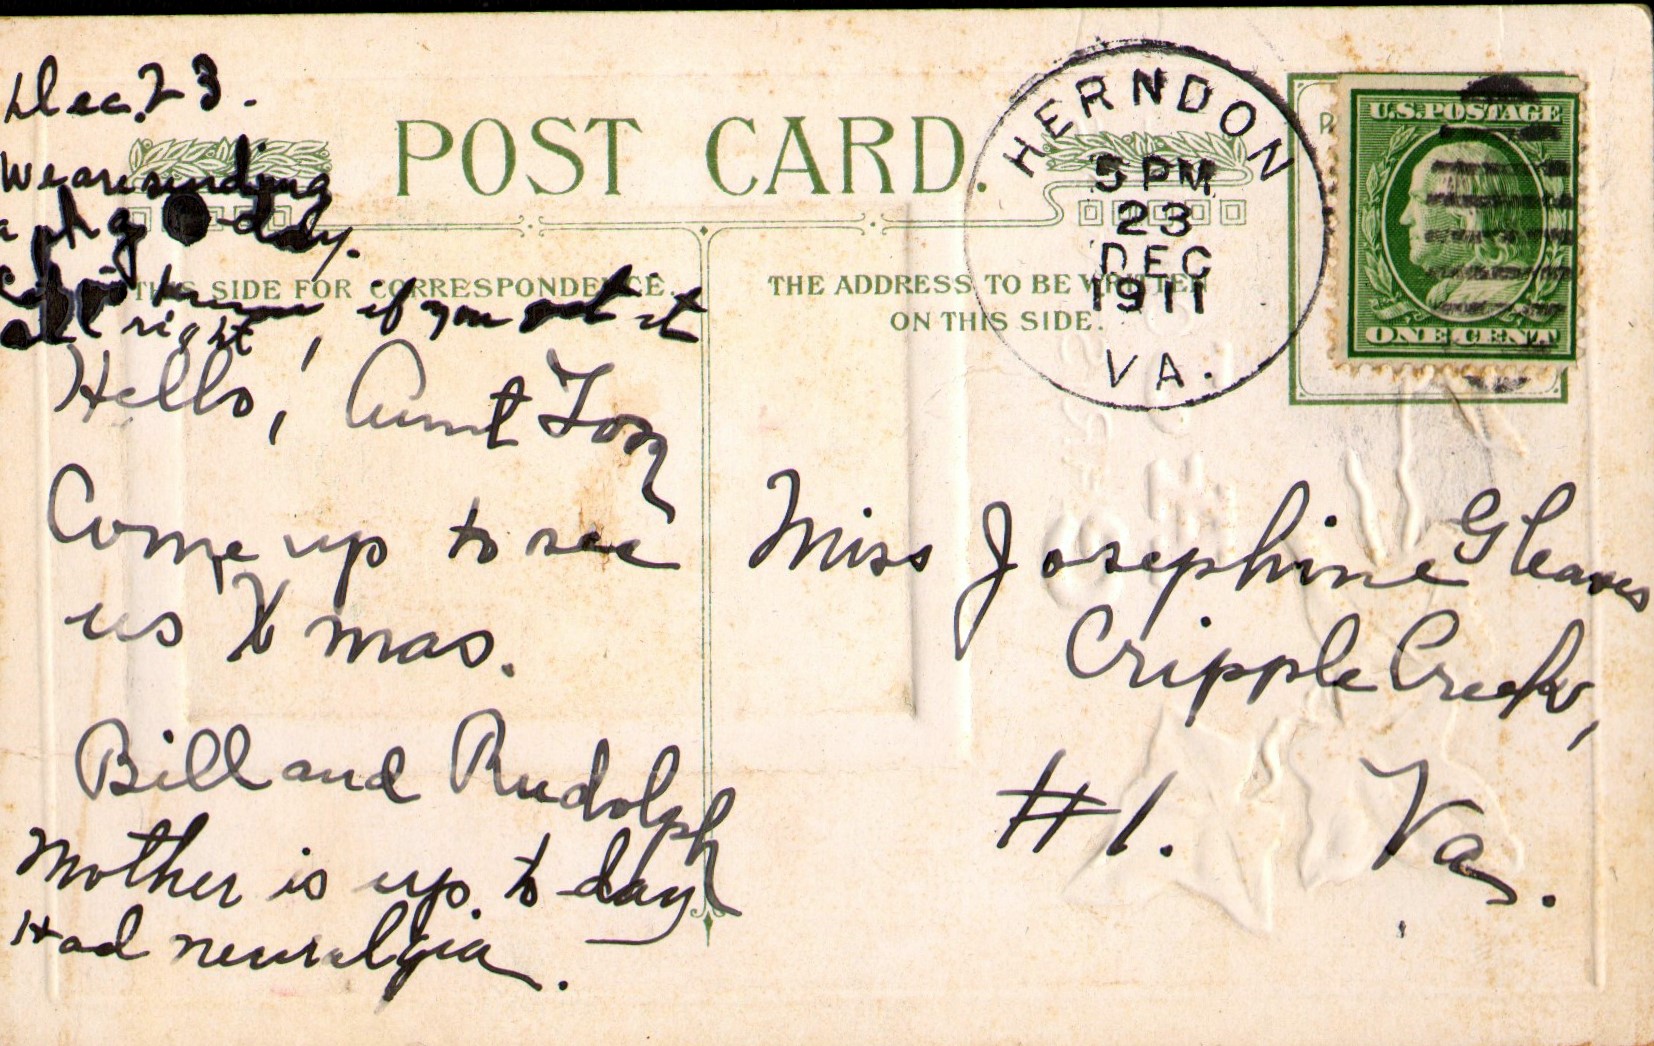 Dec. 23.
We are sending
a pkg to-day.
let us know if you get it
all right,
Hello, Aunt Josy
Come up to see
us Xmas.
Bill and Rudolph
Mother is up to day
Had neuralgia.
POST CARD.
THIS SIDE FOR CORRESPONDENCE.
THE ADDRESS TO BE WRITTEN
ON THIS SIDE.
HERNDON
5 PM
23
DEC
1911
VA.
U.S. POSTAGE
ONE CENT
Miss Josephine Gleaves
Cripple Creek,
#1. Va.